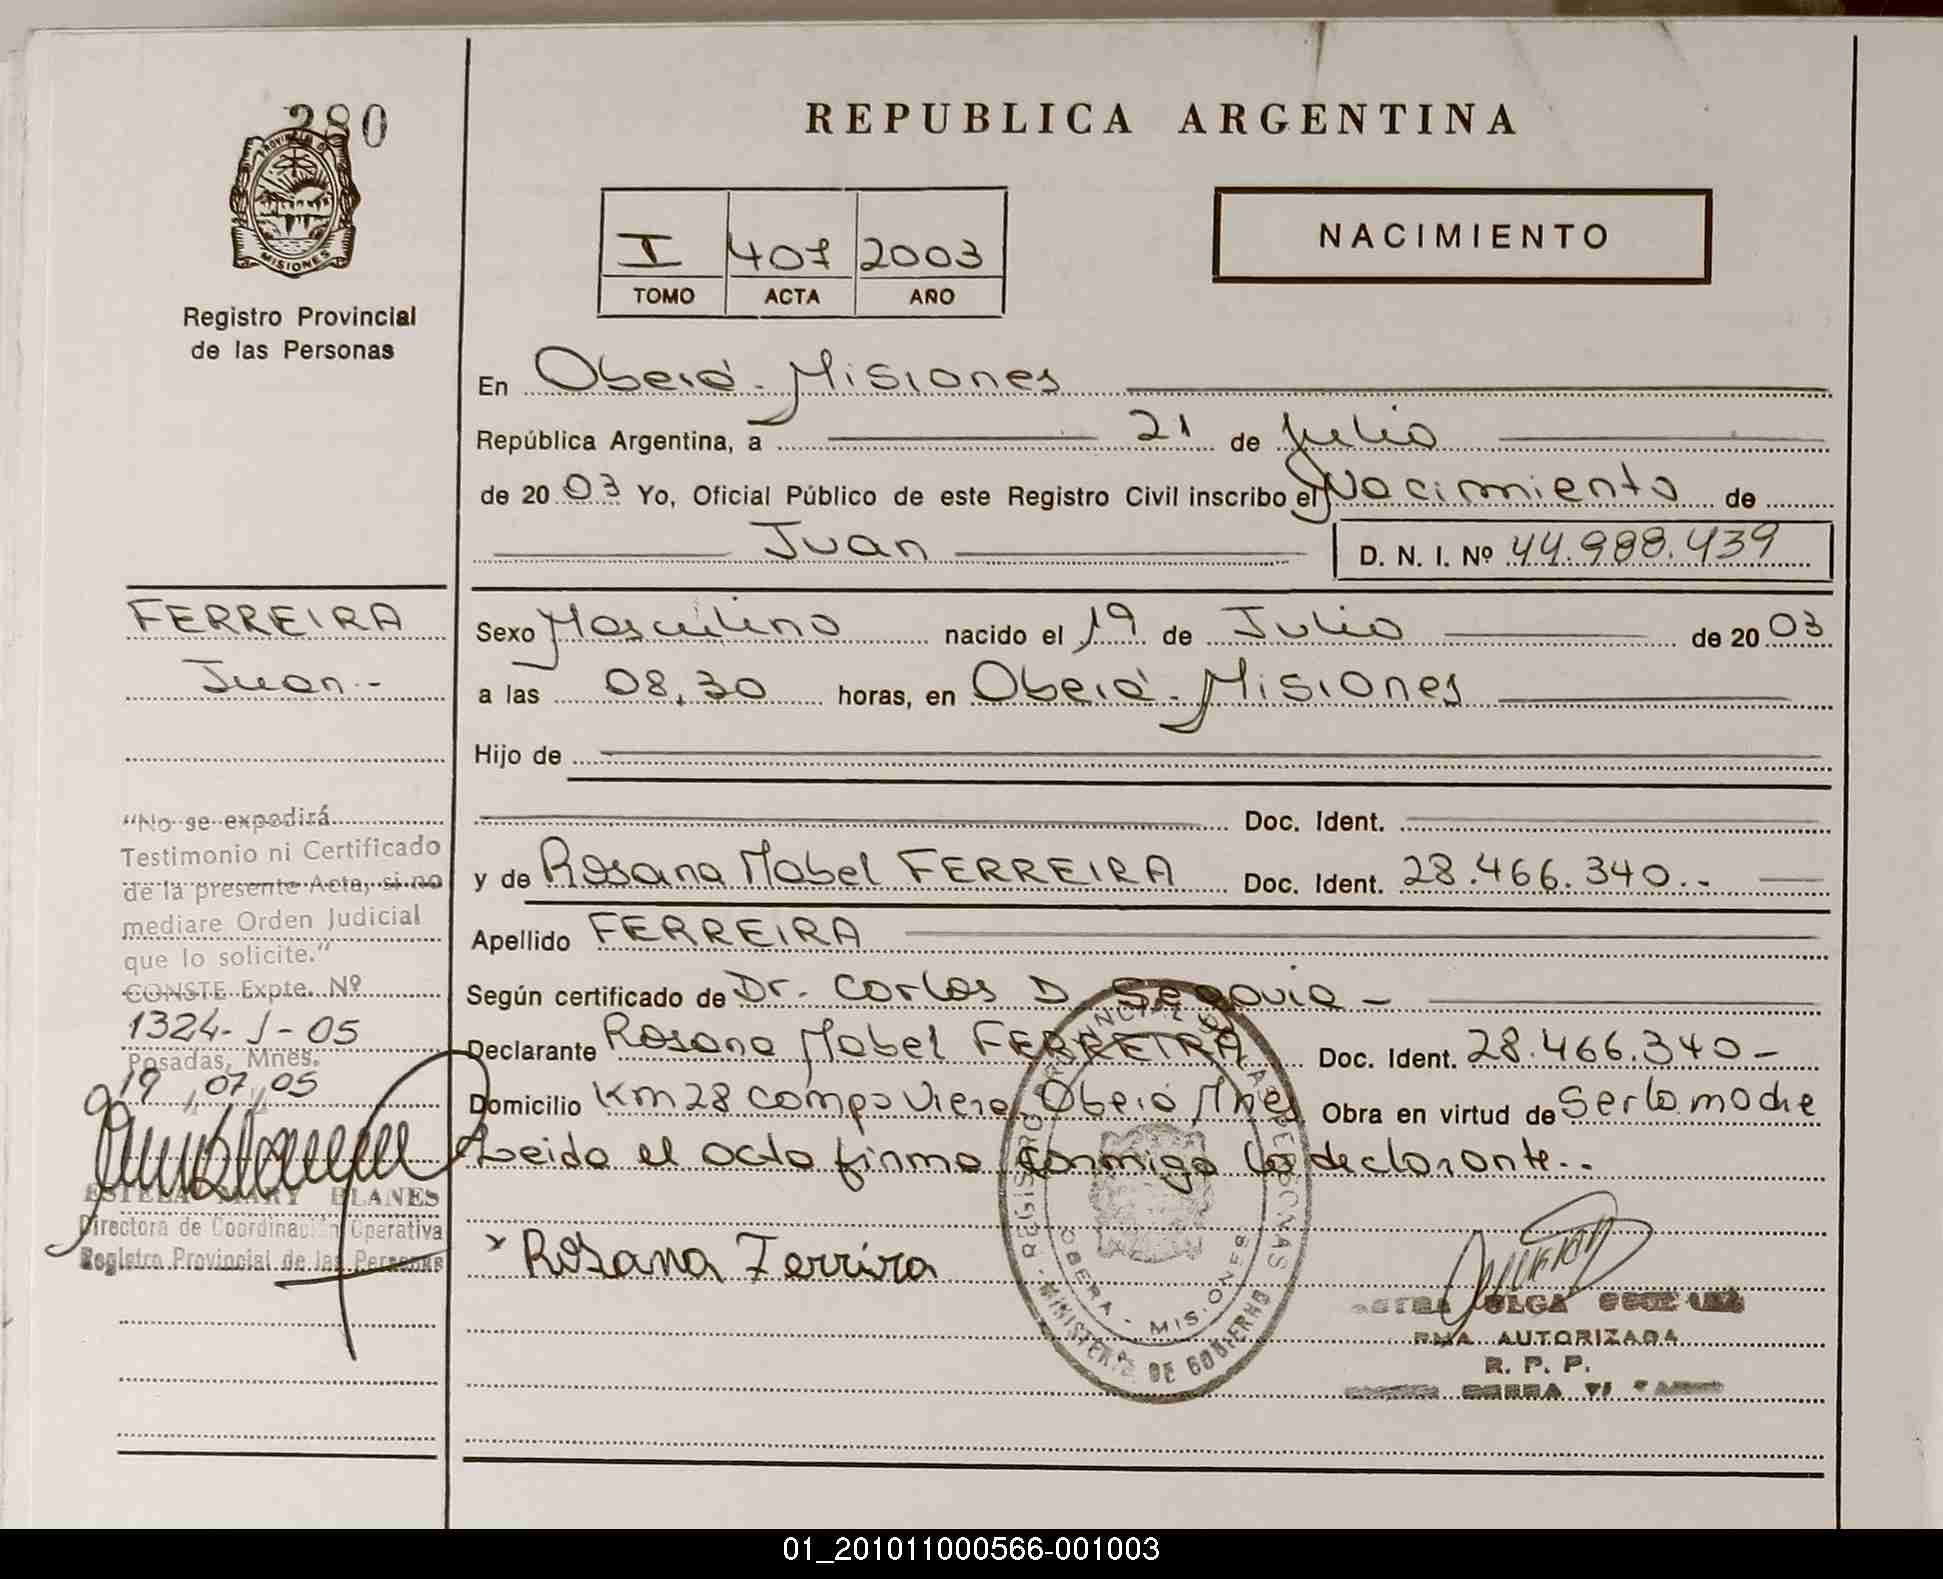 280
REPUBLICA ARGENTINA
PROVINCIA DE MISIONES
Registro Provincial
de las Personas
I 407 2003
TOMO ACTA AÑO
NACIMIENTO
En Oberá - Misiones
República Argentina, a 21 de Julio
de 2003 Yo, Oficial Público de este Registro Civil inscribo el Nacimiento de
Juan D. N. I. Nº 44.988.439
FERREIRA
Juan.-
Sexo Masculino nacido el 19 de Julio de 2003
a las 08,30 horas, en Oberá - Misiones
Hijo de
Doc. Ident.
y de Rosana Mabel FERREIRA Doc. Ident. 28.466.340.-
Apellido FERREIRA
Según certificado de Dr. Carlos D. Segovia -
Declarante Rosana Mabel FERREIRA Doc. Ident. 28.466.340-
Domicilio Km 28 Campo Viera, Oberá Mnes Obra en virtud de Ser la madre
Leida el acta firma conmigo la declarante.-
"No se expedirá
Testimonio ni Certificado
de la presente Acta, si no
mediare Orden Judicial
que lo solicite."
CONSTE Expte. Nº
1324- J - 05
Posadas, Mnes.
19, 07, 05
ESTELA MARY BLANES
Directora de Coordinación Operativa
Registro Provincial de las Personas
x Rosana Ferrira
REGISTRO PROVINCIAL DE LAS PERSONAS - MINISTERIO DE GOBIERNO
OBERA - MISIONES
OLGA
AUTORIZADA
R. P. P.
01_201011000566-001003